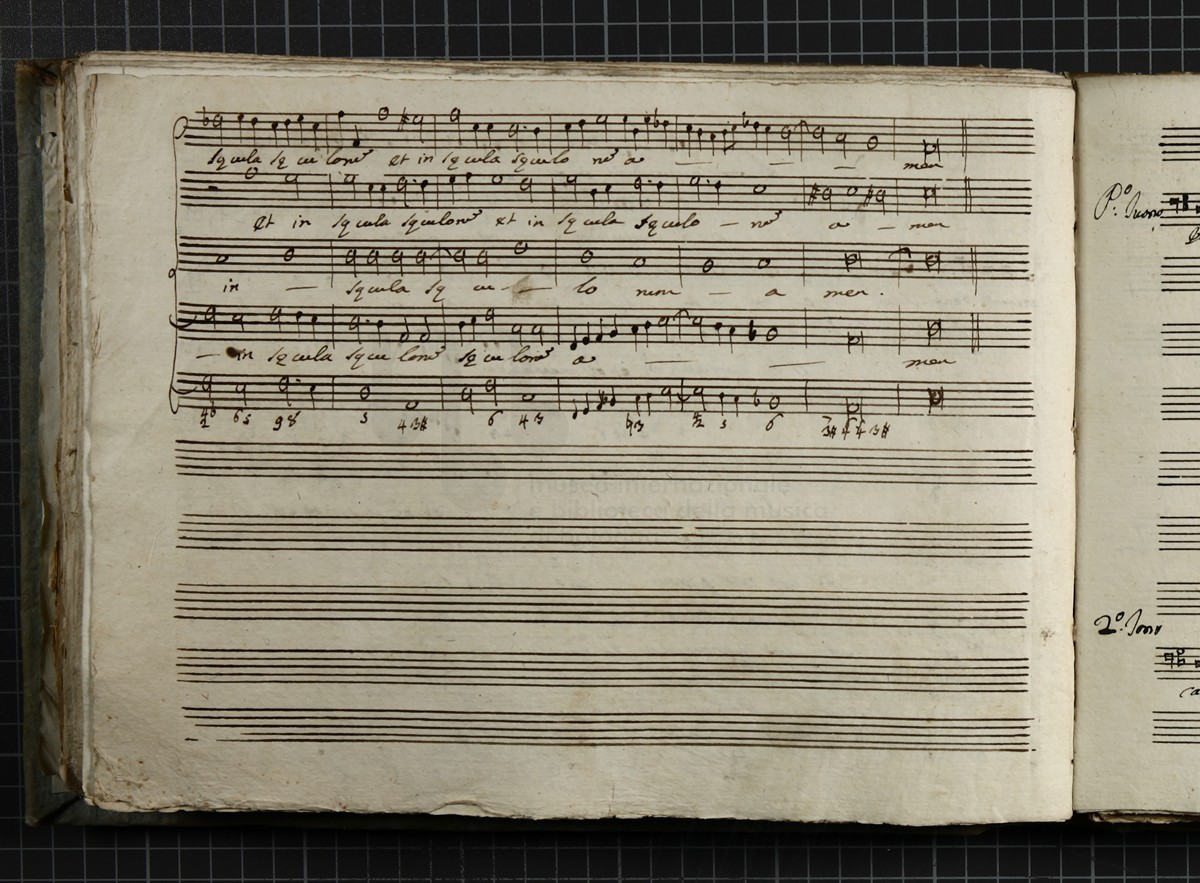 sęcula sęculorũ et in sęcula sęculo rũ a — — — men
Et in sęcula sęculorũ et in sęcula sęculo — rũ a — men
in — sęcula sę cu — — lo rum — a men .
— in sęcula sęcu lorũ sęculorũ a — — men
6 5 9 8 5 4 3# 6 4 3 4 3 5 6 3# 4 4 3#
museo internazionale
e biblioteca della musica
P.º Tuono
2.º Tono